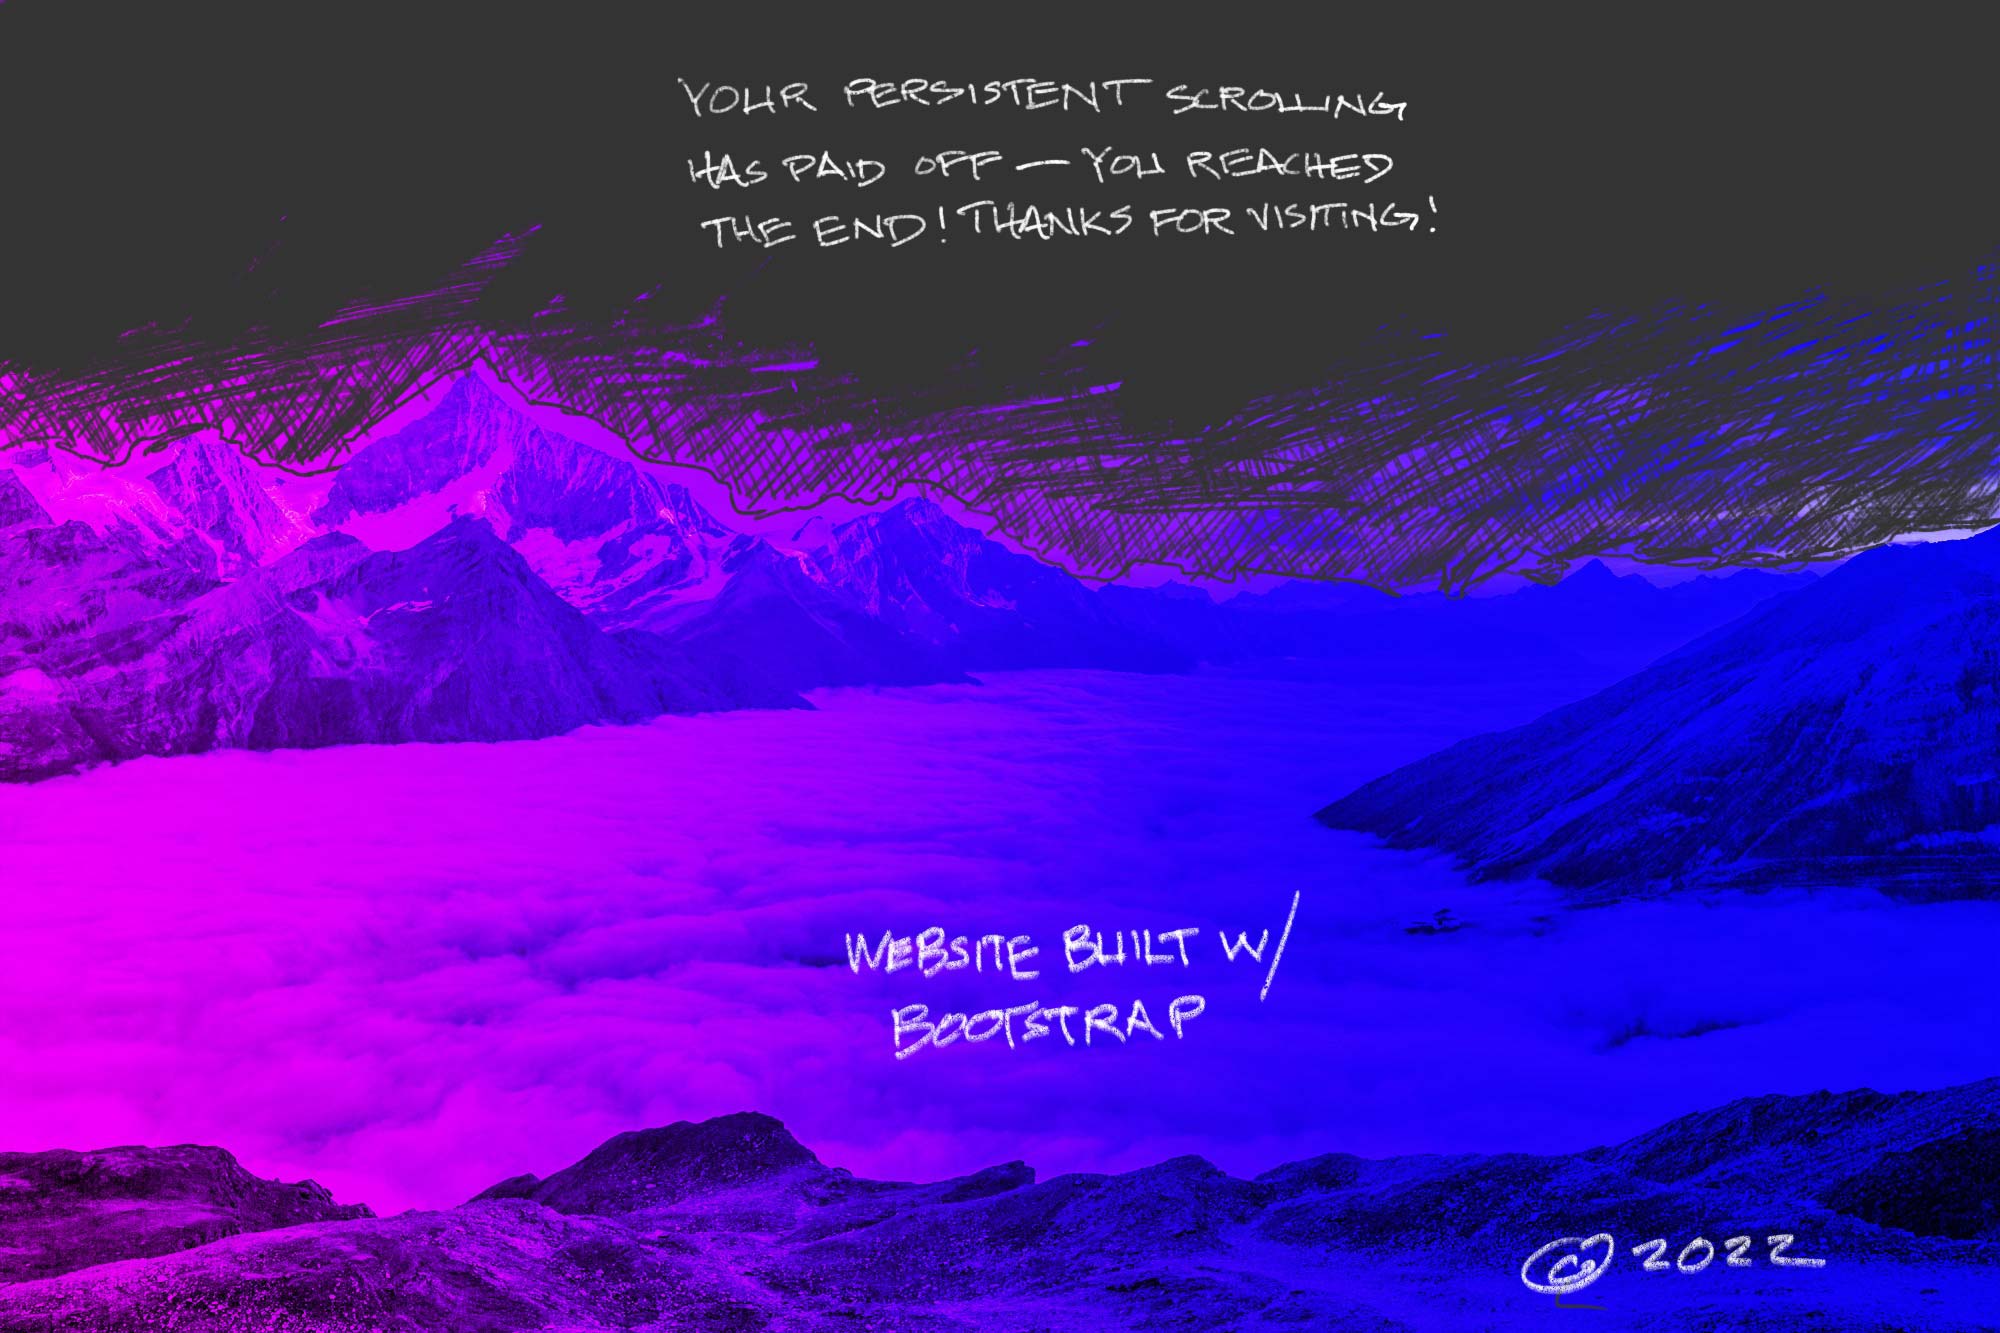 YOUR PERSISTENT SCROLLING
HAS PAID OFF — YOU REACHED
THE END! THANKS FOR VISITING!
WEBSITE BUILT W/
BOOTSTRAP
© 2022